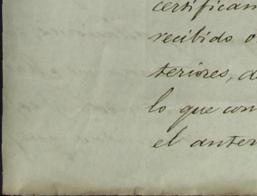 certifican
recibido o
teriores, d
lo que con
el anter